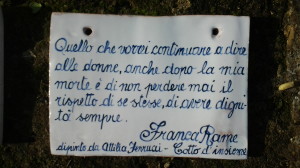 Quello che vorrei continuare a dire
alle donne, anche dopo la mia
morte è di non perdere mai il
rispetto di se stesse, di avere digni
tà sempre.
Franca Rame
dipinto da Attilia Ferrucci - Cotto d'insieme